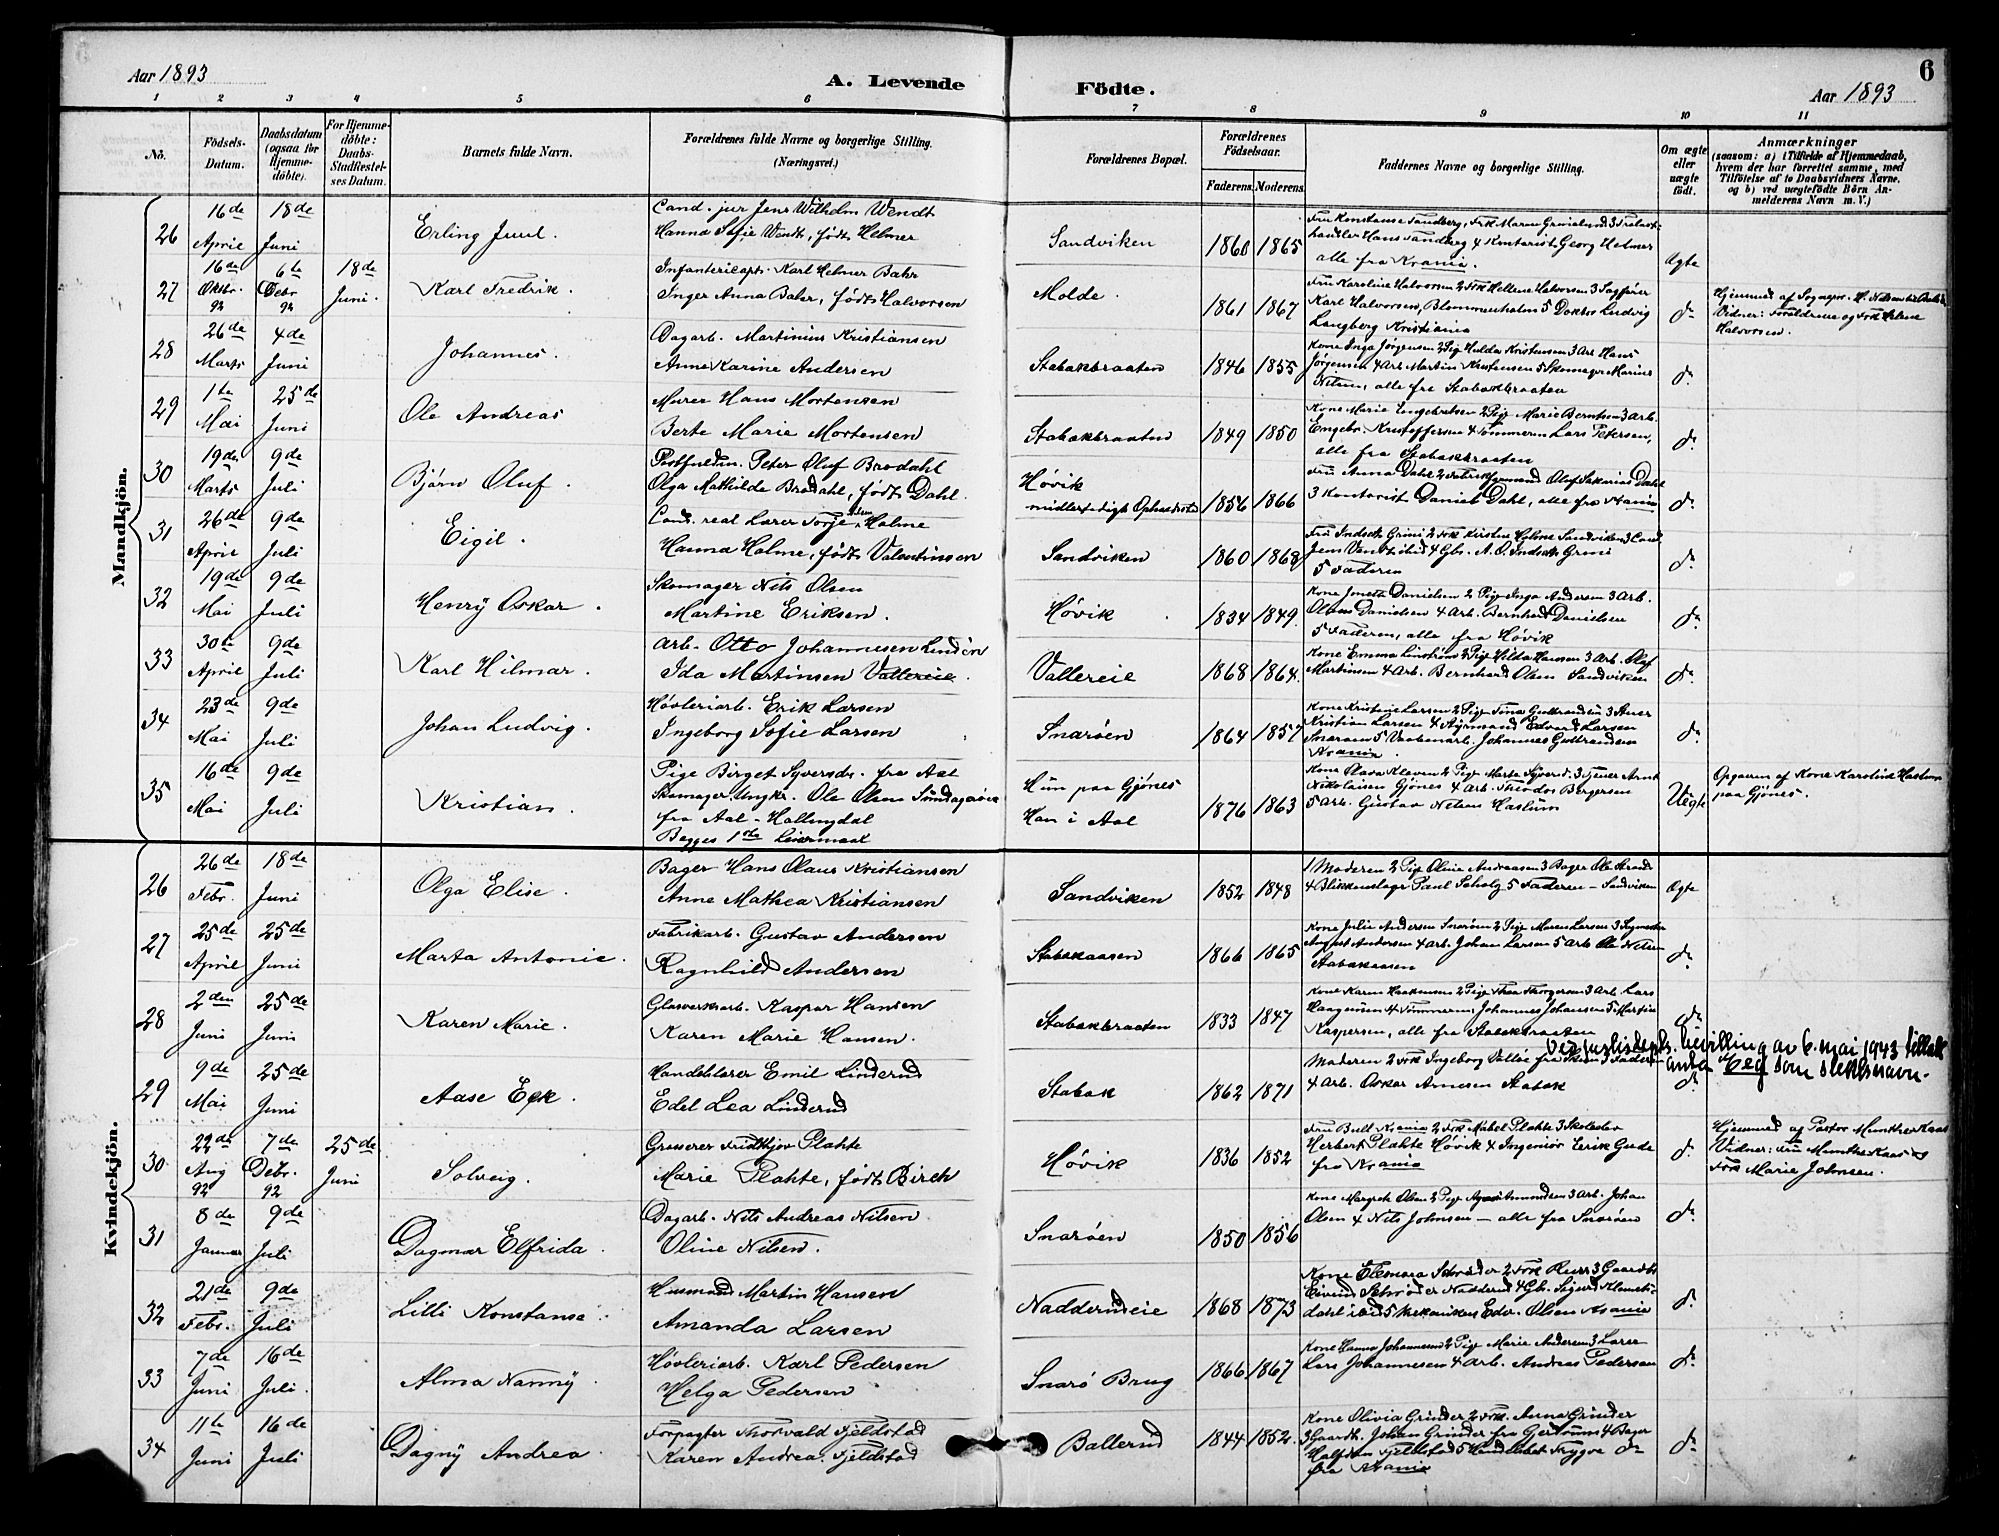 Aar 1893
A. Levende
Födte.
Aar 1893
6
1 2 3 4 5 6 7 8 9 10 11
No.
Födsels-Datum.
Daabsdatum (ogsaa for Hjemmedöbte).
For Hjemmedöbte: Daabs-Stadfæstelses Datum.
Barnets fulde Navn.
Forældrenes fulde Navne og borgerlige Stilling. (Næringsvei.)
Forældrenes Bopæl.
Forældrenes Födselsaar.
Faderens. Moderens.
Faddernes Navne og borgerlige Stilling.
Om ægte eller uægte födt.
Anmærkninger
(saasom: a) i Tilfælde af Hjemmedaab, hvem der har forrettet samme, med Tilföielse af to Daabsvidners Navne, og b) ved uægtefödte Börn Anmelderens Navn m. V.)
Mandkjön.
26 16de April 18de Juni Erling Juul. Cand. jur Jens Wilhelm Wendt
Hanna Sofie Wendt, født Helmer Sandviken 1860 1865
alle fra Krania. ægte
27 16de Oktbr. 92 6te Debr 92 18de Juni. Karl Fredrik. Infantericapt. Karl Helmer Bahr
Inger Anna Bahr, født Halvorsen Molde. 1861 1867
Fru Karoline Halvorsen 2 Frk Hellene Halvorsen 3 Sagfører
Karl Halvorsen, Blommenholm 5 Doktor Ludvig
Langberg Kristiania do
Halvorsen.
28 26de Marts 4de Juni Johannes. Dagarb. Martinius Kristiansen
Anne Karine Andersen Stabækbraaten 1846 1855
Kone Inga Jørgensen 2 Pig Hulda Kristensen 3 Arb Hans
Jørgensen 4 Arb Martin Kristensen 5 Skomager Marius
Nilsen, alle fra Stabækbraaten do
29 1te Mai 25de Juni Ole Andreas Murer Hans Mortensen
Berte Marie Mortensen Stabækbraaten 1849 1850
Kone Marie Engebretsen 2 Pige Marie Berntsen 3 Arb.
Engebr. Kristoffersen 4 Tømmerm Lars Petersen,
alle fra Stabækbraaten do
30 19de Marts 9de Juli Bjørn Oluf. Peter Oluf Brodahl
Olga Mathilde Brodahl, født Dahl. Høvik
midlertidigt Opholdssted 1856 1866
3 Kontorist Daniel Dahl, alle fra Krania do
31 26de April 9de Juli Eigil. Cand. real Lærer Torje Holme
Hanna Holme, født Valentinsen Sandviken 1860 1868
5 Faderen do
32 19de Mai 9de Juli Henry Oskar. Skomager Nils Olsen
Martine Eriksen. Høvik 1834 1849.
Danielsen 2 Pige Inga Andersen 3 Arb.
Danielsen 4 Arb. Bernhard Danielsen
5 Faderen, alle fra Høvik do
33 30te April 9de Juli Karl Hilmar. Arb. Otto Johannesen Lindén
Ida Martinsen Vallereie. Vallereie 1868 1864.
Kone Emma Linstrøm 2 Pige Hilda Hansen 3 Arb. Olaf
Martinsen 4 Arb. Bernhard Olsen Sandviken do
34 23de Mai 9de Juli Johan Ludvig. Høvleriarb. Erik Larsen
Ingeborg Sofie Larsen Snarøen 1864 1857
Kone Kristine Larsen 2 Pige Tina Gulbrandsen
Kristian Larsen 4 Edvard Larsen
Snarøen 5 Johannes Gulbrandsen
Krania. do
35 16de Mai 9de Juli Kristian. Pige Birget Syversdr. fra Aal
Skomager Ungkr. Ole Olsen
fra Aal-Hallingdal
Begges 1ste Leiermaal Hun paa Gjønes
Han i Aal 1876 1863
Nikolaisen Gjønes 4 Arb. Theodor Børgersen
5 Arb. Gustav Nilsen Haslum Uegte
Opgaven af Kone Karoline Haslum
paa Gjønes.
Kvindekjön.
26 26de Febr. 18de Juni Olga Elise. Bager Hans Olaus Kristiansen
Anne Mathea Kristiansen Sandviken 1852 1848
1 Moderen 2 Pig Oline Andreasen 3 Bager Ole Strand
4 Blikkenslager Paul Scholz 5 Faderen – Sandviken ægte
27 25de April 25de Juni Marta Antonie. Fabrikarb. Gustav Andersen
Ragnhild Andersen Stabækaasen 1866 1865
Kone Julie Andersen Snarøen 2 Pige Maren Larsen
August Andersen 4 Arb. Johan Larsen 5 Arb Ole Nilsen
Stabækaasen do
28 2den Juni 25de Juni Karen Marie. Glasverksarb. Kaspar Hansen
Karen Marie Hansen. Stabækbraaten 1833 1847
Haagensen 4 Tømmerm Johannes Johansen 5 Martin
Kaspersen, alle fra Stabækbraaten do
29 9de Mai 25de Juni Aase Eek. Handelslærer Emil Linderud
Edel Lea Linderud Stabæk 1862 1871
Moderen 2 Frk Ingeborg
4 Arb. Oskar Arnesen Stabæk do
Ved justisdept. bevilling av 6. mai 1943 tillatt
som slektsnavn.
30 22de Aug 92 7de Debr. 92 25de Juni Solveig. Grosserer Fridthjov Plahte
Marie Plahte, født Birch Høvik 1836 1852
Fru Bull Krania 2 Frk Mabel Plahte 3 Skoleelev
Herbert Plahte Høvik 4 Ingeniør Erik Gude
fra Krania do
Hjemmed af Pastor Munthe Kaas
Vidner: Fru Munthe Kaas og
Frk Marie Johnsen.
31 8de Januar 9de Juli Dagmar Elfrida. Dagarb. Nils Andreas Nilsen
Oline Nilsen. Snarøen 1850 1856
Kone Margrete Olsen 2 Pige Agnes Amundsen 3 Arb. Johan
Olsen 4 Nils Johnsen – alle fra Snarøen do
32 21de Febr. 9de Juli Lilli Konstanse. Husmand Martin Hansen
Amanda Larsen Nadderudeie 1868 1873
Kone Eleonora Schrøder 2 Frk Russ 3 Gaardbr
Eivind Schrøder Nadderud 4 Gbr. Sigurd
5 Mekanikus Edv. Olsen Krania do
33 7de Juni 16de Juli. Alma Nanny. Høvleriarb. Karl Pedersen
Helga Pedersen Snarø Brug 1866 1867
Kone Hanna Johannesen 2 Pige Marie Andersen 3 Lærer
Lars Johannesen 4 Arb. Andreas Pedersen do
34 11te Juni 16de Juli Dagny Andrea. Forpagter Thorvald Fjeldstad
Karen Andrea Fjeldstad Ballerud 1844 1852.
Kone Olivia Grinder 2 Frk. Anna Grinder
3 Gaardb. Johan Grinder fra Gerdrum 4 Bager
Halfdan Fjeldstad 5 Handelsbet Trygve do
fra Krania do